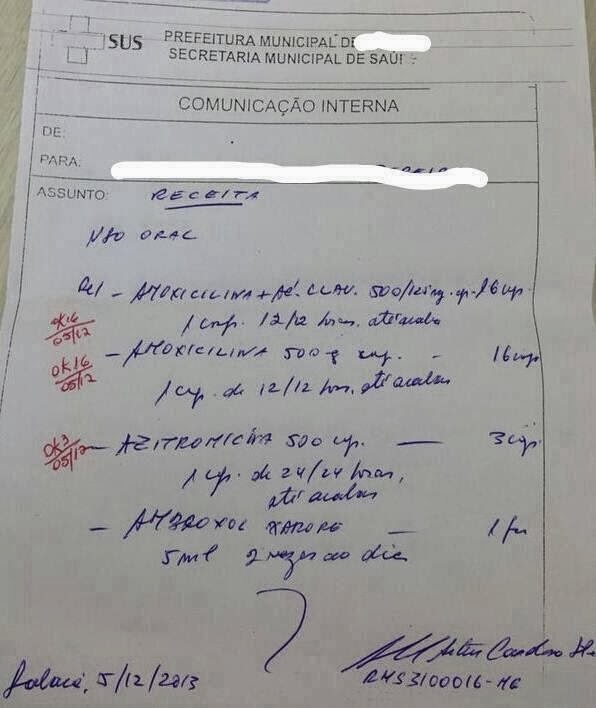 SUS
PREFEITURA MUNICIPAL DE
SECRETARIA MUNICIPAL DE SAÚ
COMUNICAÇÃO INTERNA
DE:
PARA:
ASSUNTO: RECEITA
USO ORAL
- AMOXICILINA + ÁC. CLAV. 500/125mg cp - 16 cp.
OK16
05/12
1 cmp. 12/12 horas, até acabar
- AMOXICILINA 500 cap. - 16 cap
OK16
05/12
1 cap. de 12/12 hrs, até acabar
OK3
05/12
- AZITROMICINA 500 cp. — 3 cp.
1 cp. de 24/24 horas,
até acabar
- AMBROXOL XAROPE — 1 fr
5 ml 2 vezes ao dia
5/12/2013
Cardoso
RMS3100016-MG